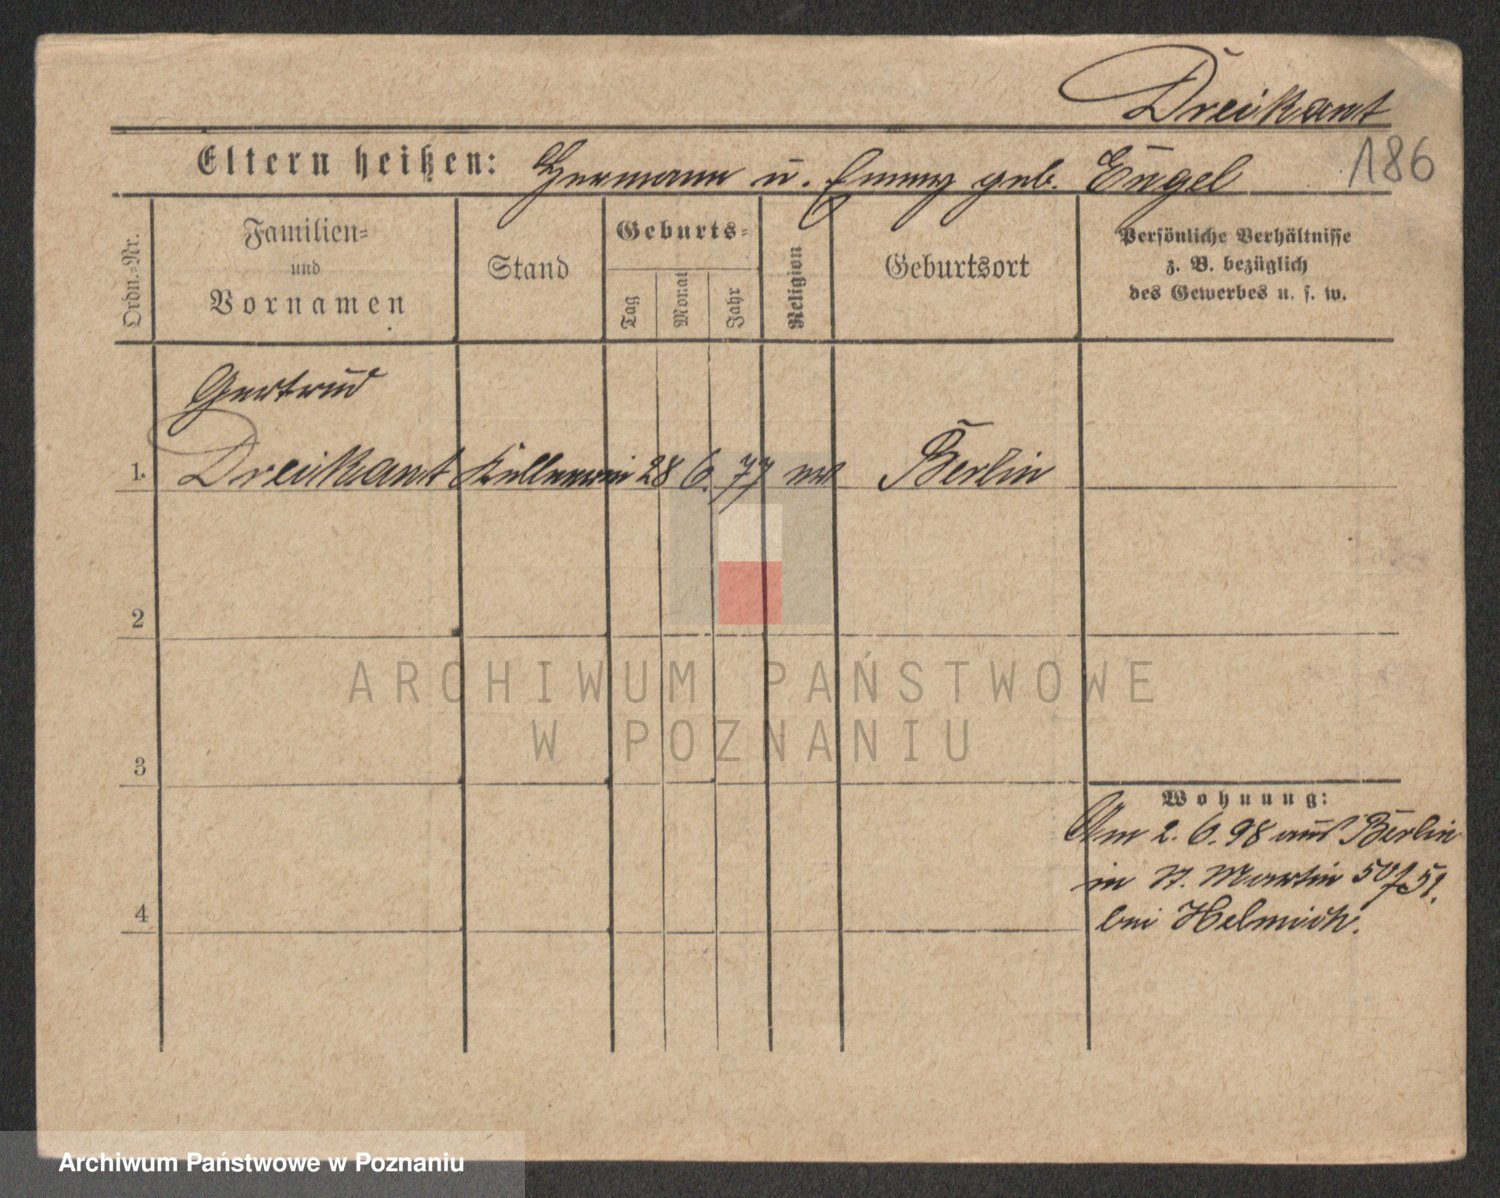 Dreikant
Eltern heißen: Hermann u. Emmy geb. Engel
186
Ordn.-Nr.
Familien-
und
Vornamen
Stand
Geburts-
Tag
Monat
Jahr
Religion
Geburtsort
Persönliche Verhältnisse
z. B. bezüglich
des Gewerbes u. s. w.
Gertrud
1. Dreikant Kellnerin 28 6. 77 Berlin
2
3
ARCHIWUM PAŃSTWOWE
W POZNANIU
Wohnung:
Am 2. 6. 98 aus Berlin
in St. Martin 50/51.
bei Helmich.
4
Archiwum Państwowe w Poznaniu